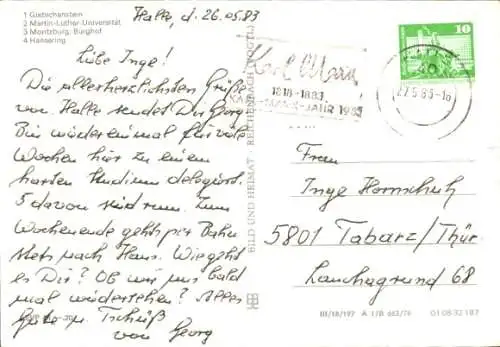 1 Giebichenstein
2 Martin-Luther-Universität
3 Moritzburg, Burghof
4 Hansering
Halle, d. 26.05.83
Liebe Inge!
Die allerherzlichsten Grüße
von Halle sendet Dir Georg
Bin wiedereinmal für viele
Wochen hier zu einem
harten Studium delegiert.
5 davon sind rum. Zum
Wochenende gehts per Bahn
stets nach Haus. Wie geht
es Dir? Ob wir uns bald
mal wiedersehen? Alles
Gute u. Tschüß
von Georg
BILD UND HEIMAT REICHENBACH (VOGTL)
Karl Marx
1818-1883
KARL-MARX-JAHR 1983
27.5.83-16
10
Frau
Inge Hornschuh
5801 Tabarz/Thür.
Lauchagrund 68
III/18/197 A 1/B 663/78 01 08 32 187